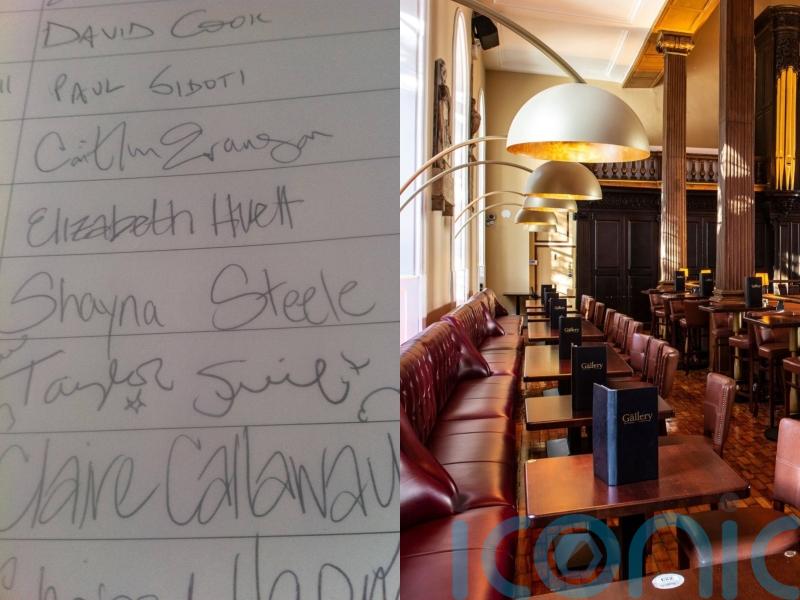 DAVID COOK
PAUL SIDOTI
Elizabeth Huett
Shayna Steele
Taylor Swift
Claire Callaway
The Gallery
The Gallery
Gallery
iconic